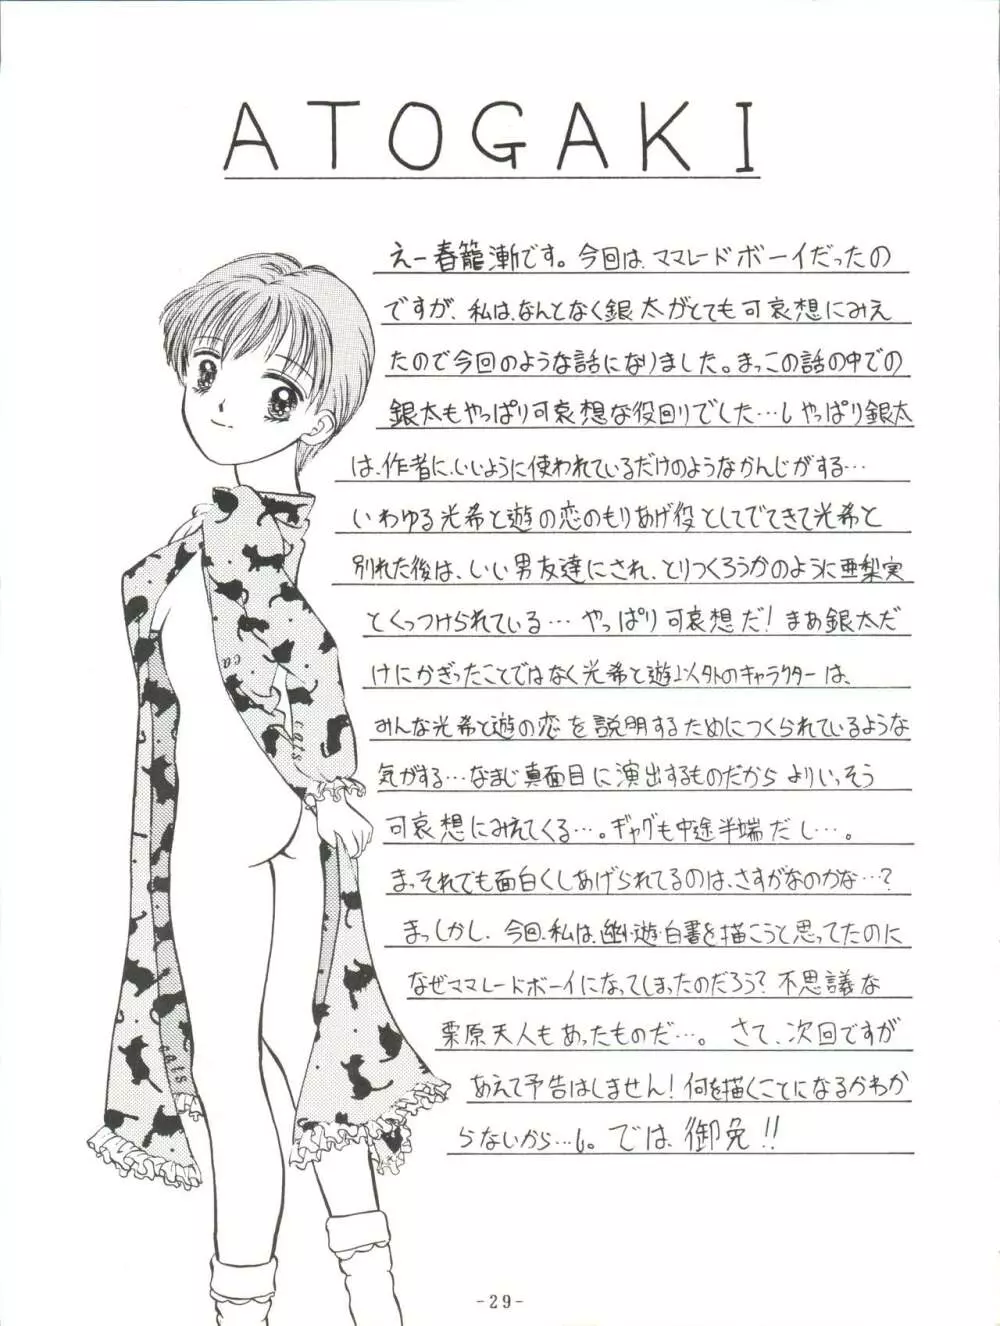 ATOGAKI
えー春籠漸です。今回は、ママレードボーイだったの
ですが、私は、なんとなく銀太がとても可哀想にみえ
たので今回のような話になりました。まっこの話の中での
銀太もやっぱり可哀想な役回りでした…しやっぱり銀太
は、作者に、いいように使われているだけのようなかんじがする…
いわゆる光希と遊の恋のもりあげ役としてでてきて光希と
別れた後は、いい男友達にされ、とりつくろうかのように亜梨実
とくっつけられている…やっぱり可哀想だ!まあ銀太だ
けにかぎったことではなく光希と遊以外のキャラクターは、
みんな光希と遊の恋を説明するためにつくられているような
気がする…なまじ真面目に演出するものだからよりいっそう
可哀想にみえてくる…。ギャグも中途半端だし…。
まっそれでも面白くしあげられてるのは、さすがなのかな…?
まっしかし、今回、私は、幽・遊・白書を描こうと思ってたのに
なぜママレードボーイになってしまったのだろう?不思議な
栗原天人もあったものだ…。さて、次回ですが
あえて予告はしません!何を描くことになるかわか
らないから…し。では、御免!!
cats
cats
-29-